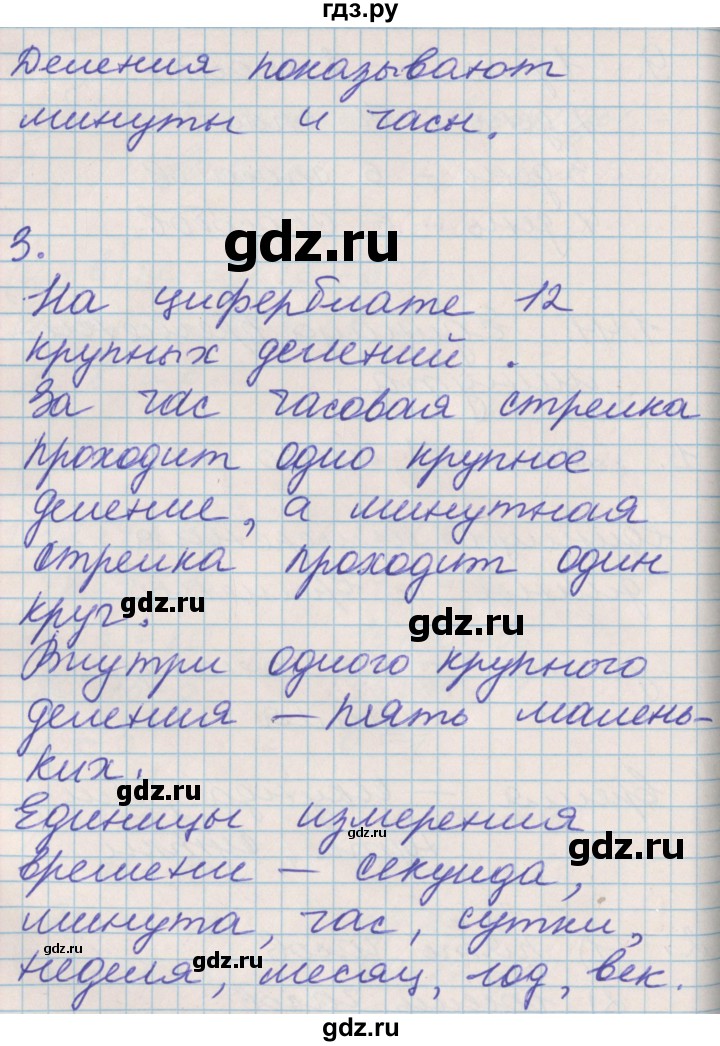 гдз.ру
Деления показывают
минуты и часы.
gdz.ru
3.
На циферблате 12
крупных делений.
За час часовая стрелка
проходит одно крупное
деление, а минутная
стрелка проходит один
gdz.ru
круг.
gdz.ru
Внутри одного крупного
деления — пять малень-
ких.
gdz.ru
Единицы измерения
gdz.ru
gdz.ru
времени — секунда,
минута, час, сутки,
gdz.ru
gdz.ru
неделя, месяц, год, век.
gdz.ru